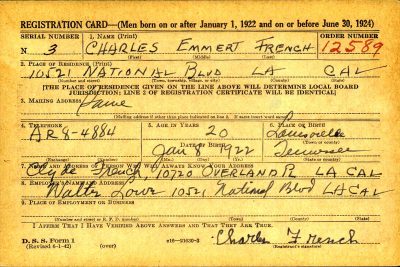 REGISTRATION CARD—(Men born on or after January 1, 1922 and on or before June 30, 1924)
SERIAL NUMBER 1. NAME (Print) ORDER NUMBER
N 3 CHARLES EMMERT FRENCH 12589
(First) (Middle) (Last)
2. PLACE OF RESIDENCE (Print)
10521 NATIONAL BLVD LA CAL
(Number and street) (Town, township, village, or city) (County) (State)
[THE PLACE OF RESIDENCE GIVEN ON THE LINE ABOVE WILL DETERMINE LOCAL BOARD
JURISDICTION; LINE 2 OF REGISTRATION CERTIFICATE WILL BE IDENTICAL]
3. MAILING ADDRESS
Same
[Mailing address if other than place indicated on line 2. If same insert word same]
4. TELEPHONE 5. AGE IN YEARS 6. PLACE OF BIRTH
AR 8-4884 20 Louisville
DATE OF BIRTH (Town or county)
Jan 8 1922 Tennessee
(Exchange) (Number) (Mo.) (Day) (Yr.) (State or country)
7. NAME AND ADDRESS OF PERSON WHO WILL ALWAYS KNOW YOUR ADDRESS
Clyde French, 10720 OVERLAND LA CAL
8. EMPLOYER'S NAME AND ADDRESS
Walter Lowe 10521 National Blvd LA CAL
9. PLACE OF EMPLOYMENT OR BUSINESS
(Number and street or R. F. D. number) (Town) (County) (State)
I AFFIRM THAT I HAVE VERIFIED ABOVE ANSWERS AND THAT THEY ARE TRUE.
D. S. S. Form 1
(Revised 6-1-42) (over) Charles French